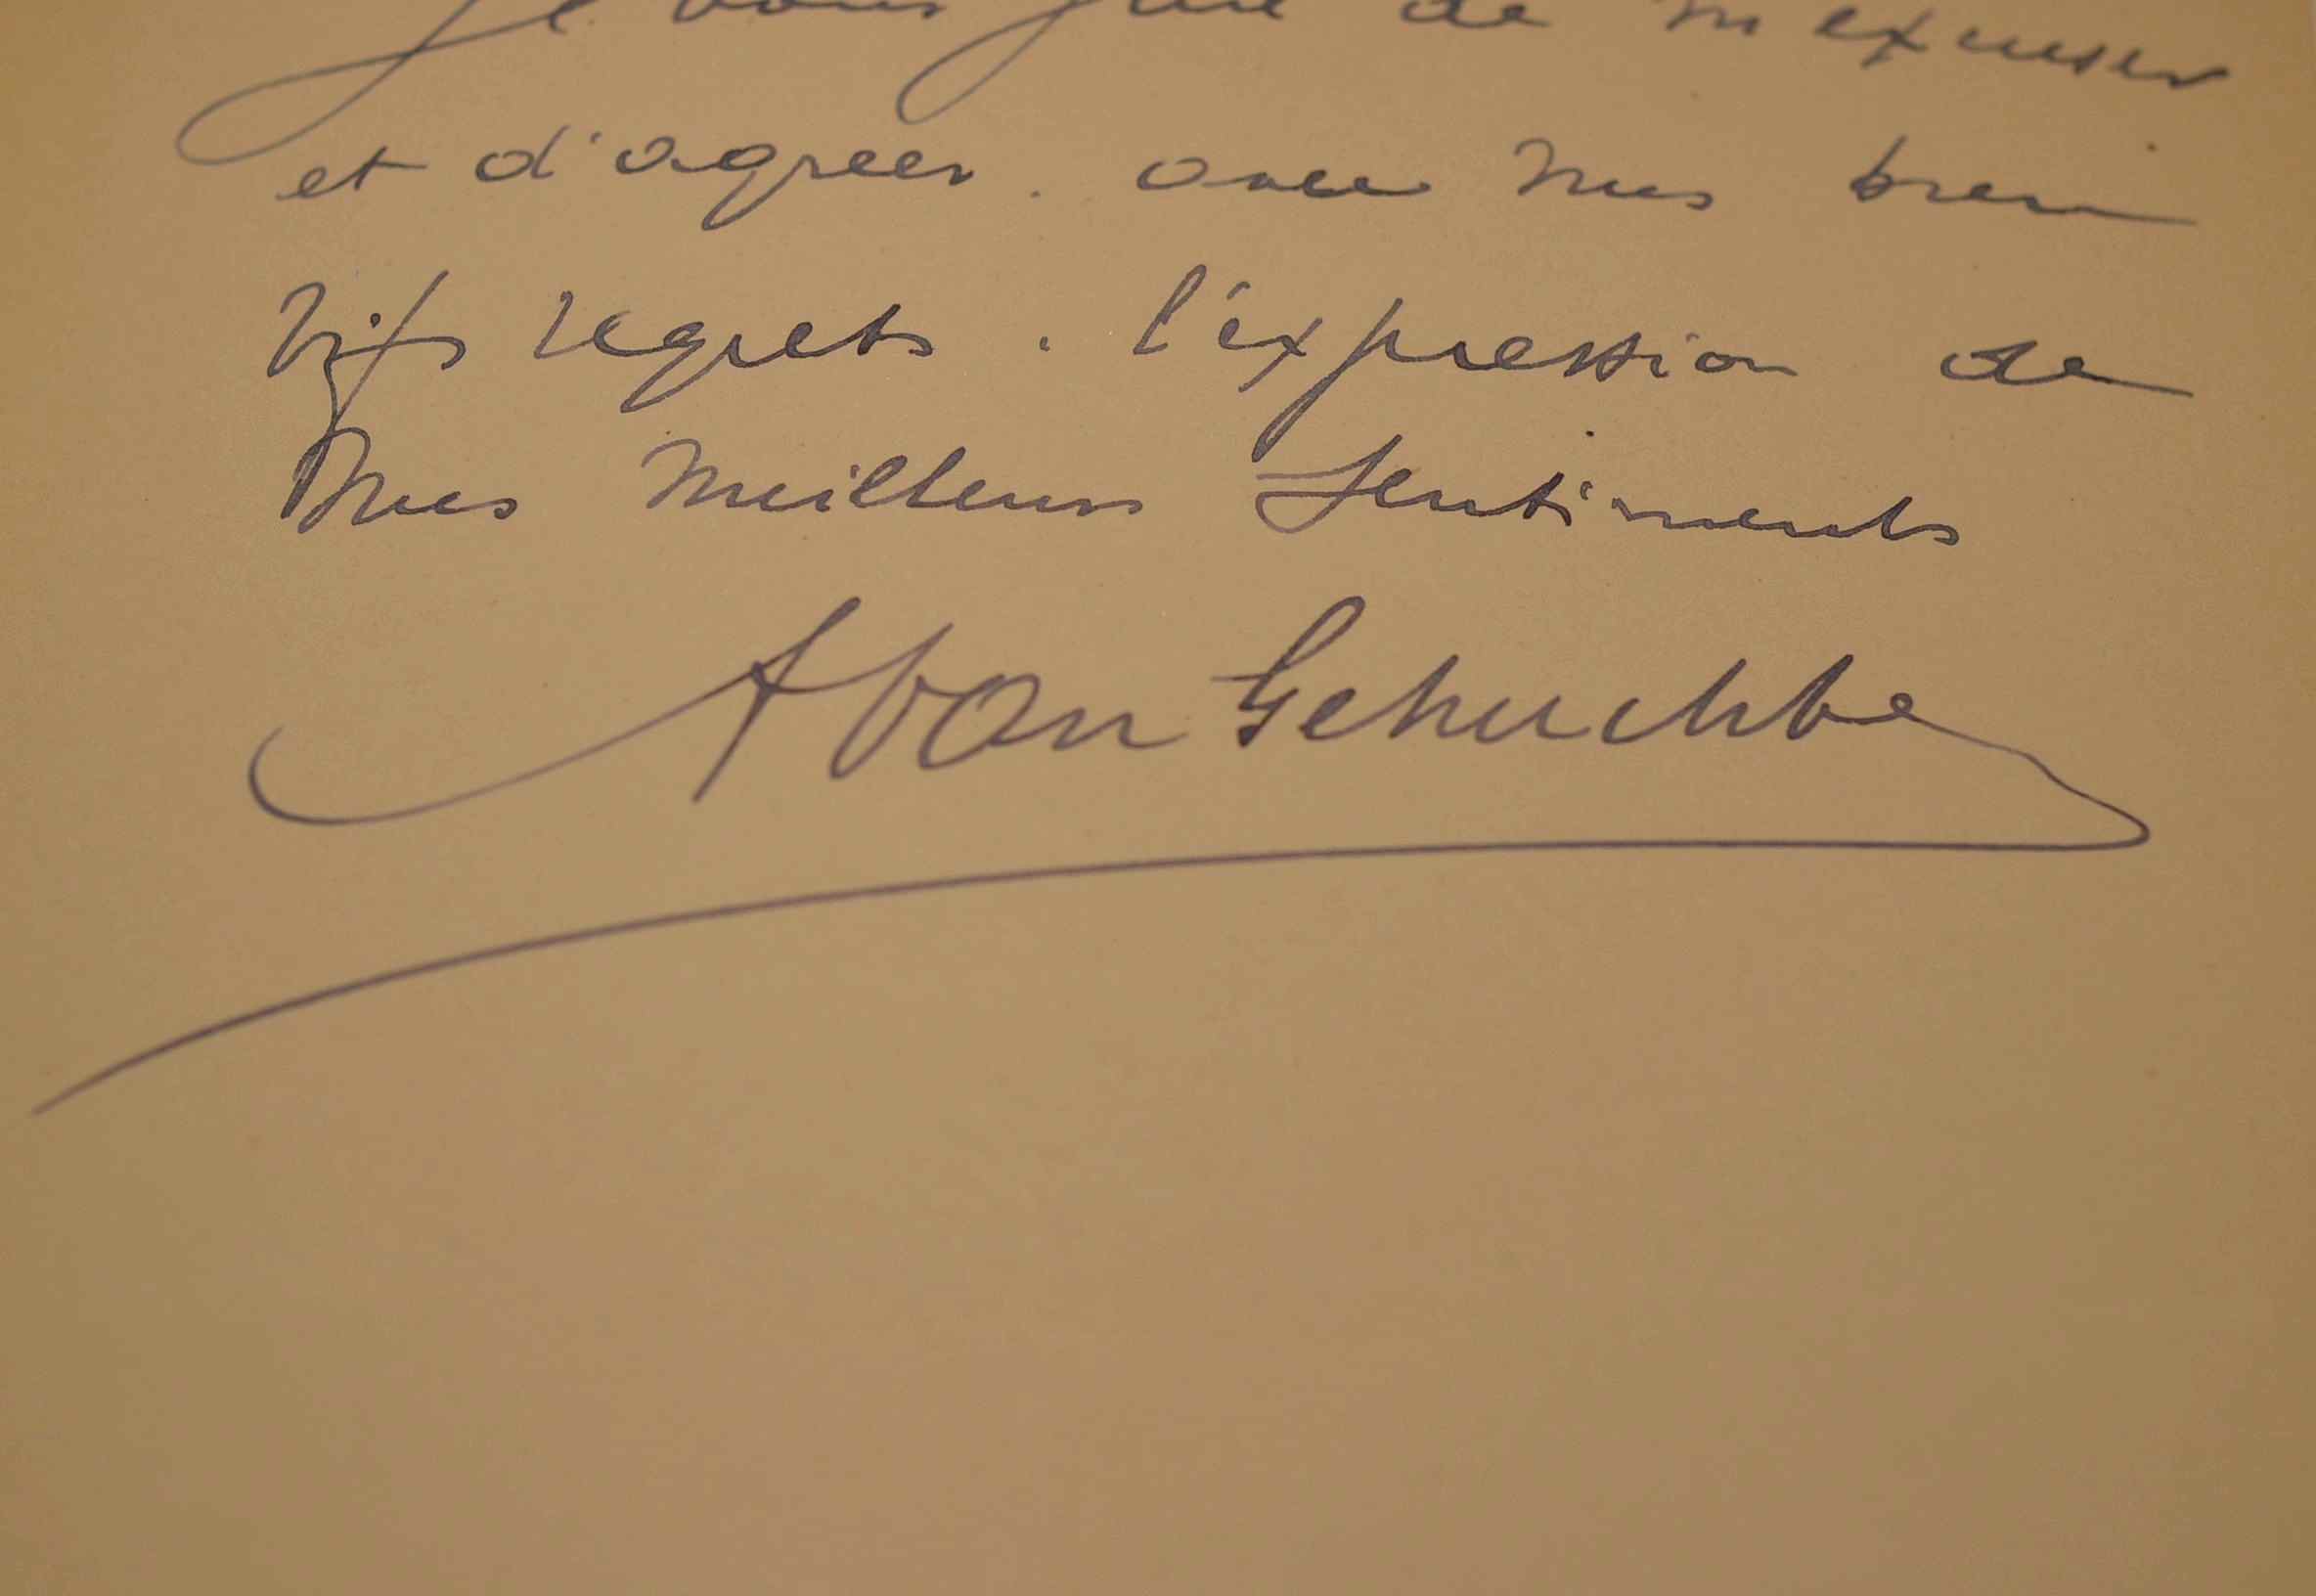 Je vous prie de m'excuser
et d'agréer. avec mes bien
vifs regrets. l'expression de
mes meilleurs sentiments
A Van Gehuchten